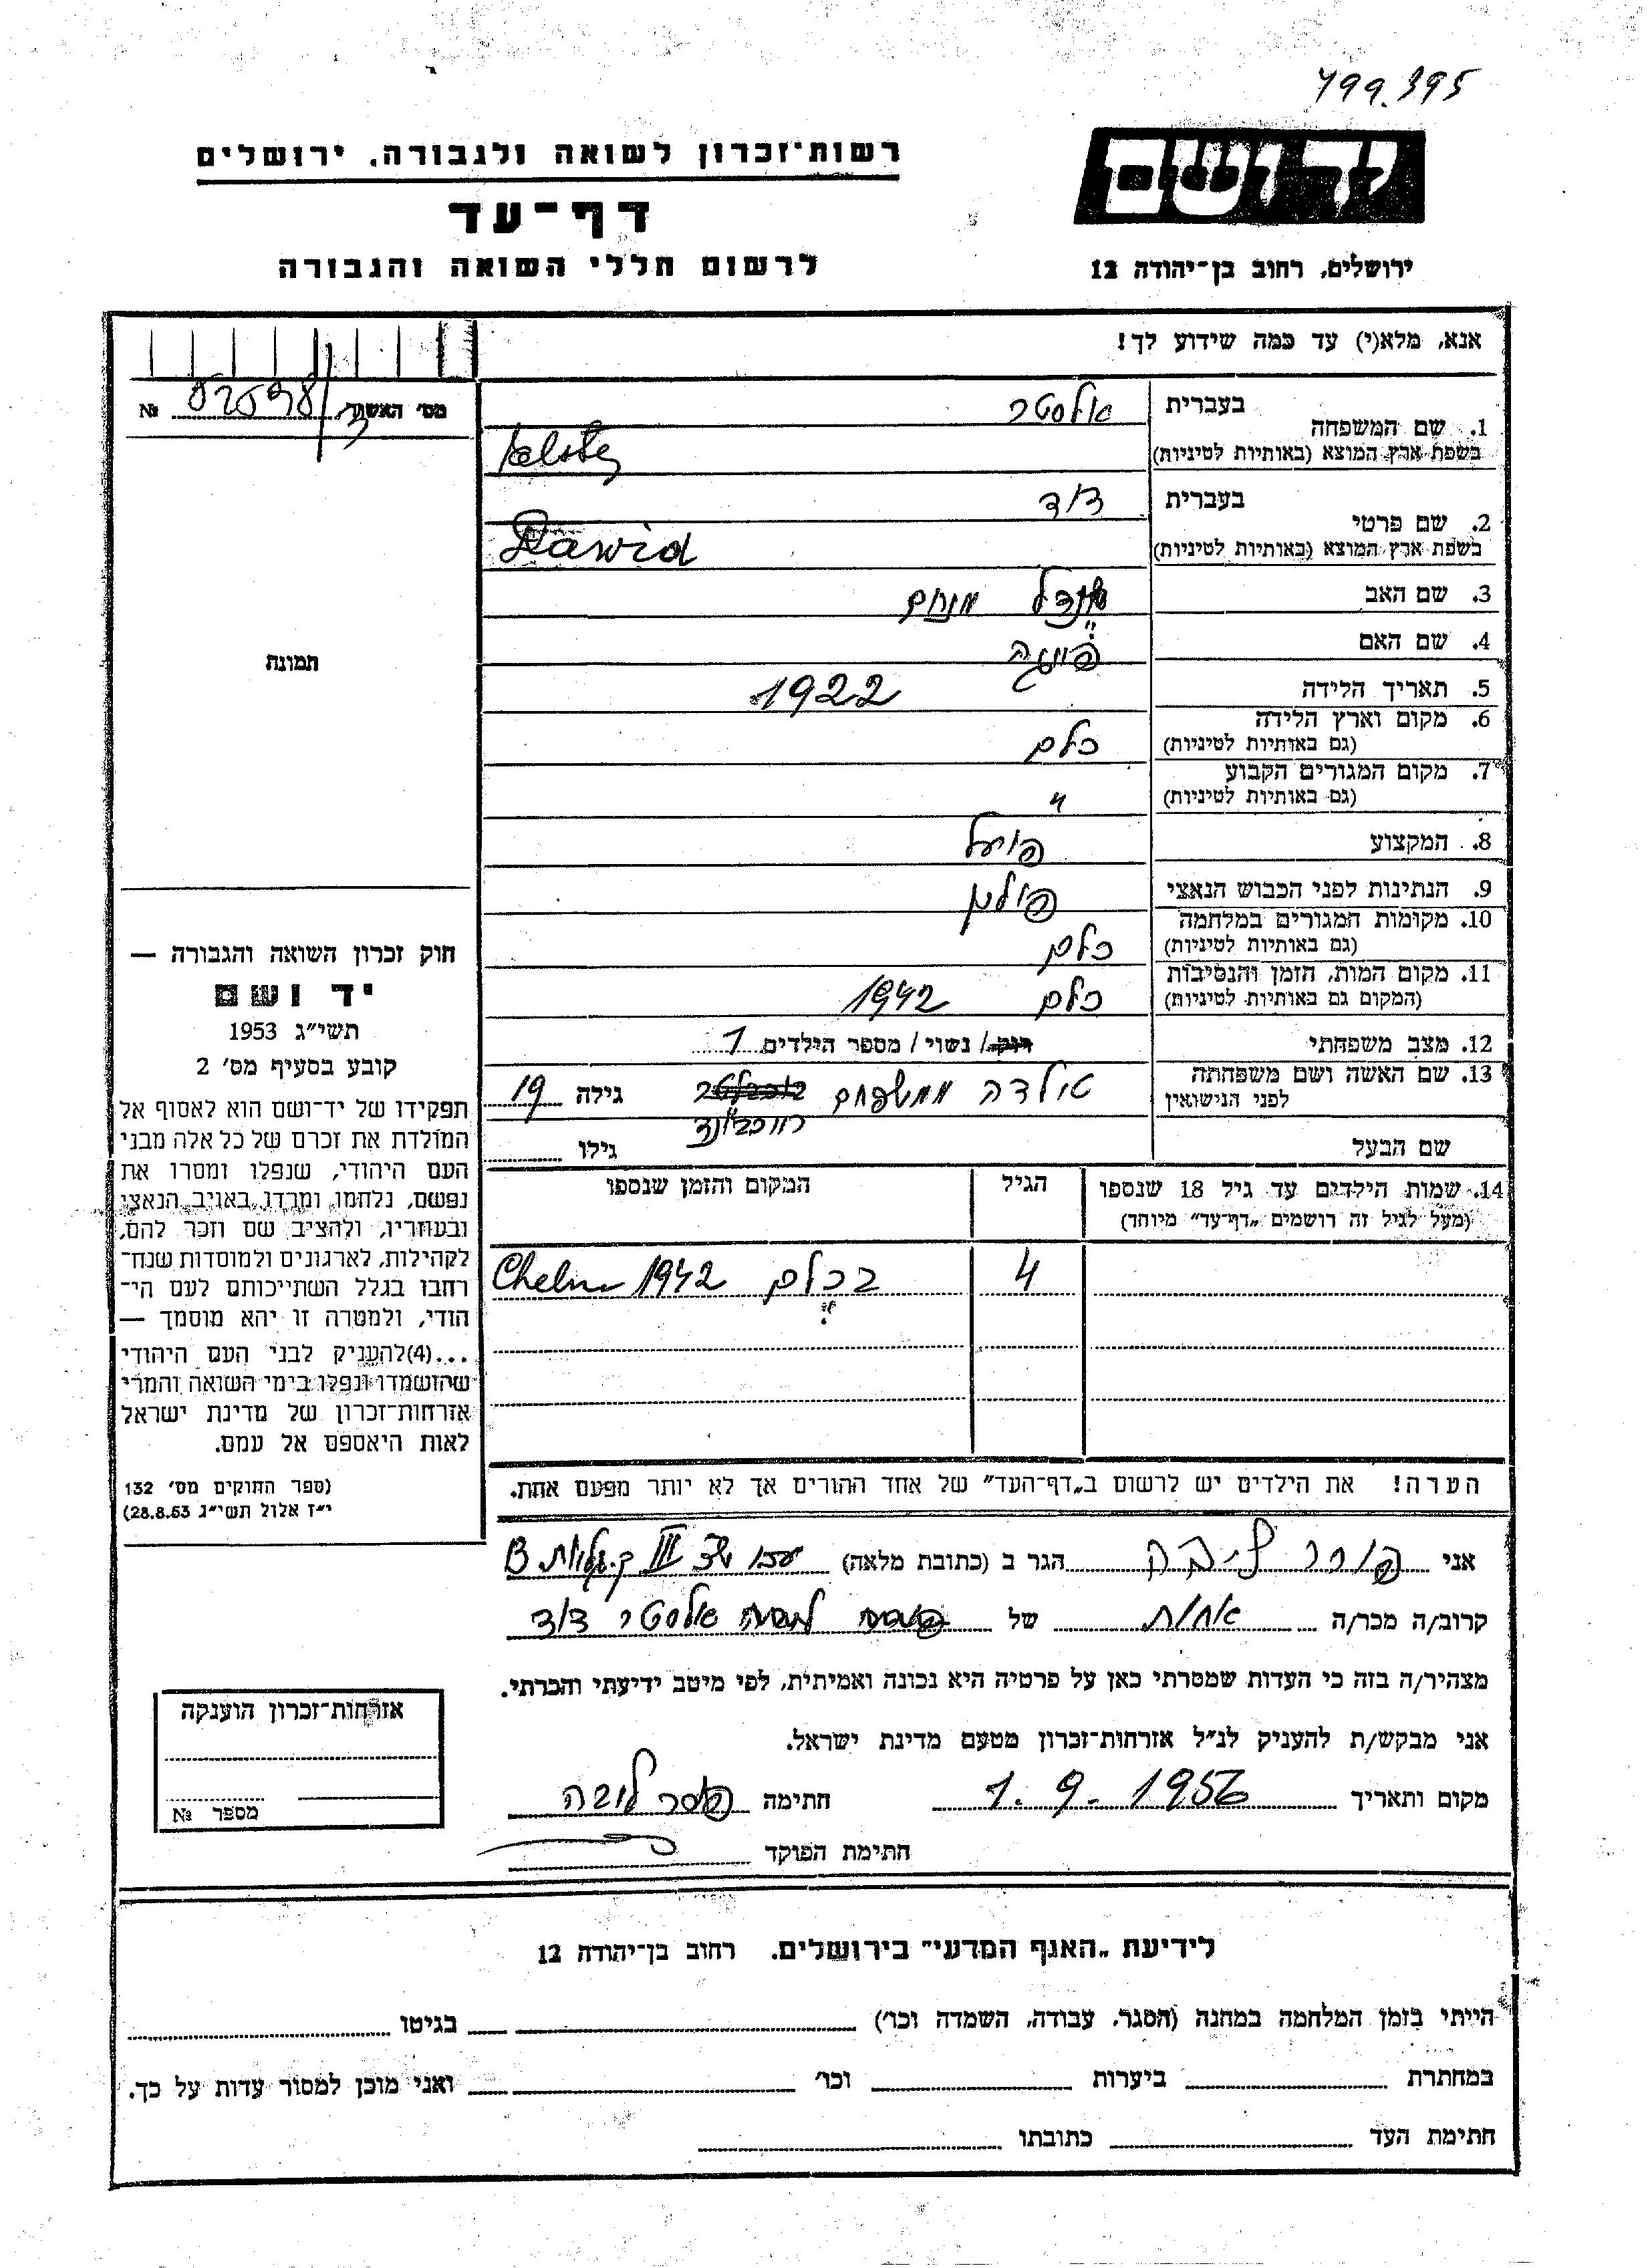 499.395
רשות־זכרון לשואה ולגבורה, ירושלים
דף־עד
לרשום חללי השואה והגבורה
יד ושם
ירושלים, רחוב בן־יהודה 12
אנא, מלא(י) עד כמה שידוע לך!
מס׳ האשה № 02598/3
תמונה
1. שם המשפחה
בעברית אלסטר
בשפת ארץ המוצא (באותיות לטיניות)
2. שם פרטי
בעברית דוד
בשפת ארץ המוצא (באותיות לטיניות) Dawid
3. שם האב מנדל מנחם
4. שם האם פייגה
5. תאריך הלידה 1922
6. מקום וארץ הלידה
(גם באותיות לטיניות) כלם
7. מקום המגורים הקבוע
(גם באותיות לטיניות) "
8. המקצוע פועל
9. הנתינות לפני הכבוש הנאצי פולין
10. מקומות המגורים במלחמה
(גם באותיות לטיניות) כלם
11. מקום המות, הזמן והנסיבות
(המקום גם באותיות לטיניות) כלם 1942
12. מצב משפחתי רוק / נשוי / מספר הילדים 1
13. שם האשה ושם משפחתה
לפני הנישואין גולדה ממשפחת גילה 19
שם הבעל גילו
14. שמות הילדים עד גיל 18 שנספו
(מעל לגיל זה רושמים „דף־עד״ מיוחד)
הגיל
המקום והזמן שנספו
4 בכלם 1942 Chelm
הערה! את הילדים יש לרשום ב„דף־העד״ של אחד ההורים אך לא יותר מפעם אחת.
חוק זכרון השואה והגבורה —
יד ושם
תשי״ג 1953
קובע בסעיף מס׳ 2
תפקידו של יד־ושם הוא לאסוף אל
המולדת את זכרם של כל אלה מבני
העם היהודי, שנפלו ומסרו את
נפשם, נלחמו ומרדו באויב הנאצי
ובעוזריו, ולהציב שם וזכר להם,
לקהילות, לארגונים ולמוסדות שנח־
רבו בגלל השתייכותם לעם הי־
הודי, ולמטרה זו יהא מוסמך —
...(4)להעניק לבני העם היהודי
שהושמדו ונפלו בימי השואה והמרי
אזרחות־זכרון של מדינת ישראל
לאות היאספם אל עמם.
(ספר החוקים מס׳ 132
י״ז אלול תשי״ג 28.8.53)
אני הגר ב (כתובת מלאה)
קרוב/ה מכר/ה אחות של אלסטר דוד
מצהיר/ה בזה כי העדות שמסרתי כאן על פרטיה היא נכונה ואמיתית, לפי מיטב ידיעתי והכרתי.
אני מבקש/ת להעניק לנ״ל אזרחות־זכרון מטעם מדינת ישראל.
מקום ותאריך 1.9.1956 חתימה
חתימת הפוקד
אזרחות־זכרון הוענקה
מספר №
לידיעת „האגף המדעי״ בירושלים. רחוב בן־יהודה 12
הייתי בזמן המלחמה במחנה (הסגר, עבודה, השמדה וכו׳) בגיטו
במחתרת ביערות וכו׳ ואני מוכן למסור עדות על כך.
חתימת העד כתובתו